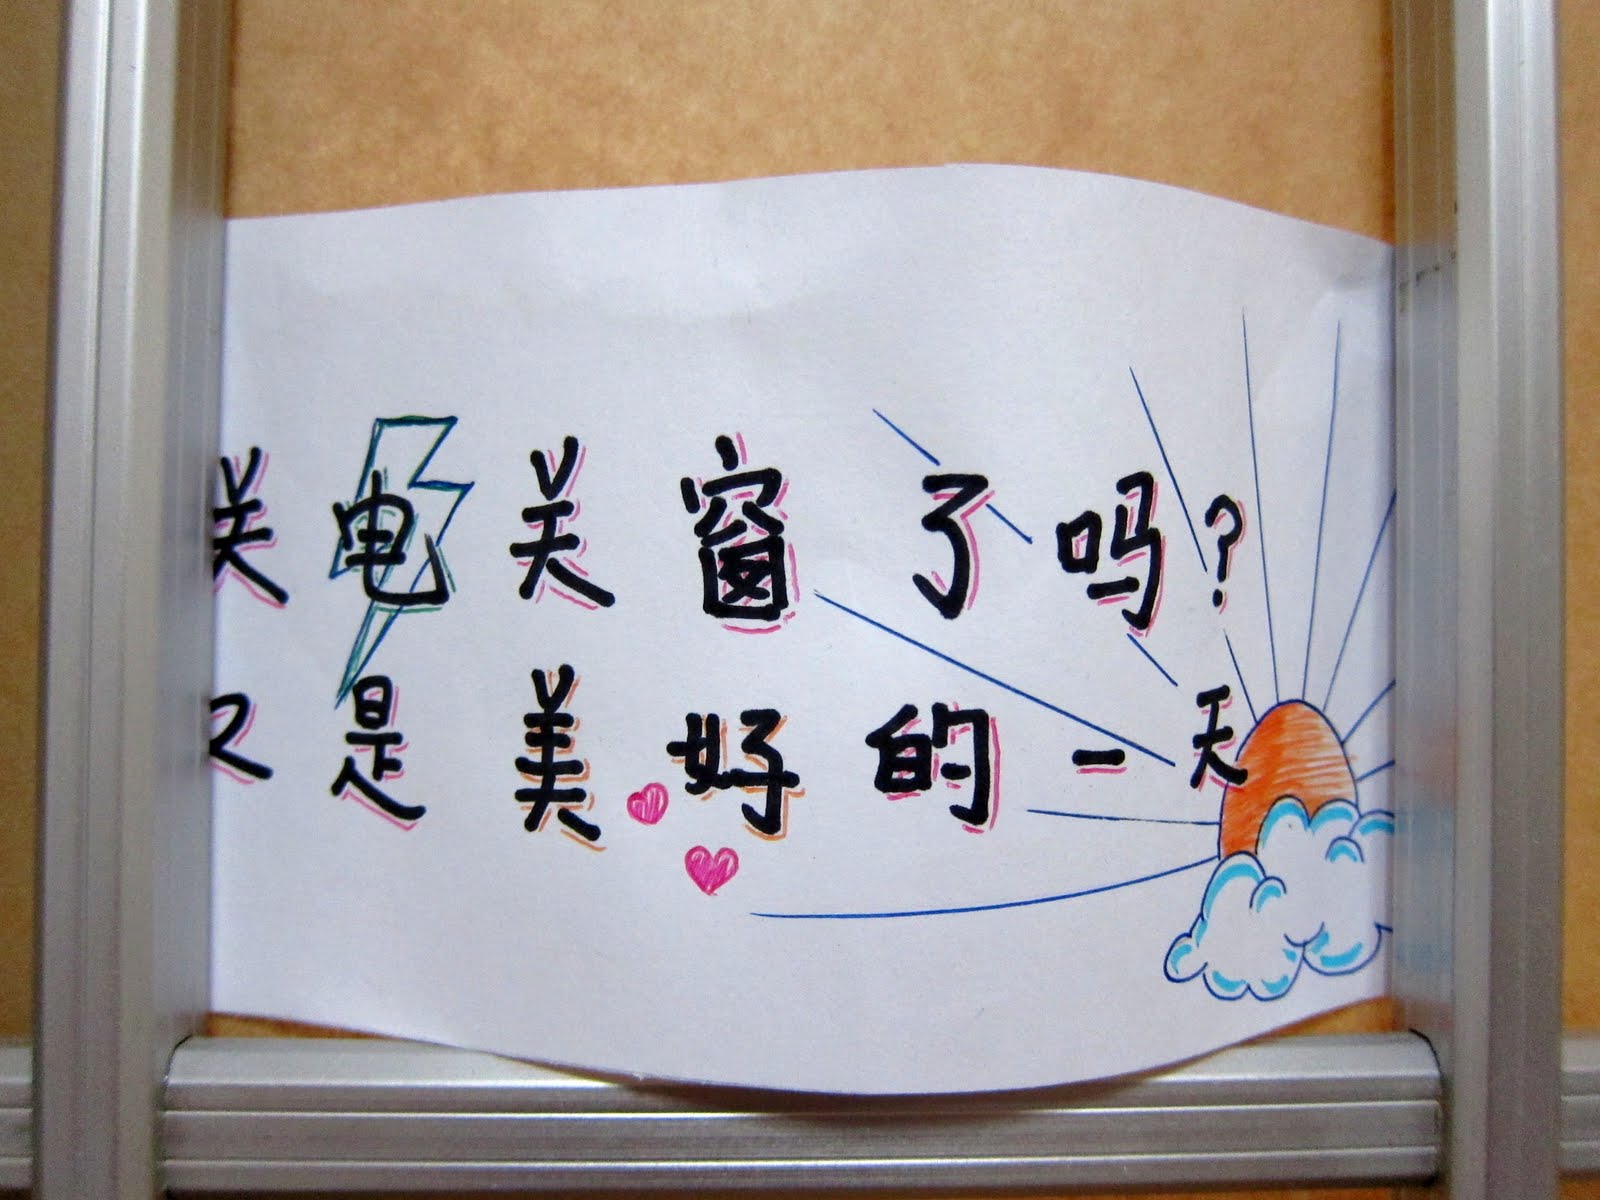 关电关窗了吗?
又是美好的一天